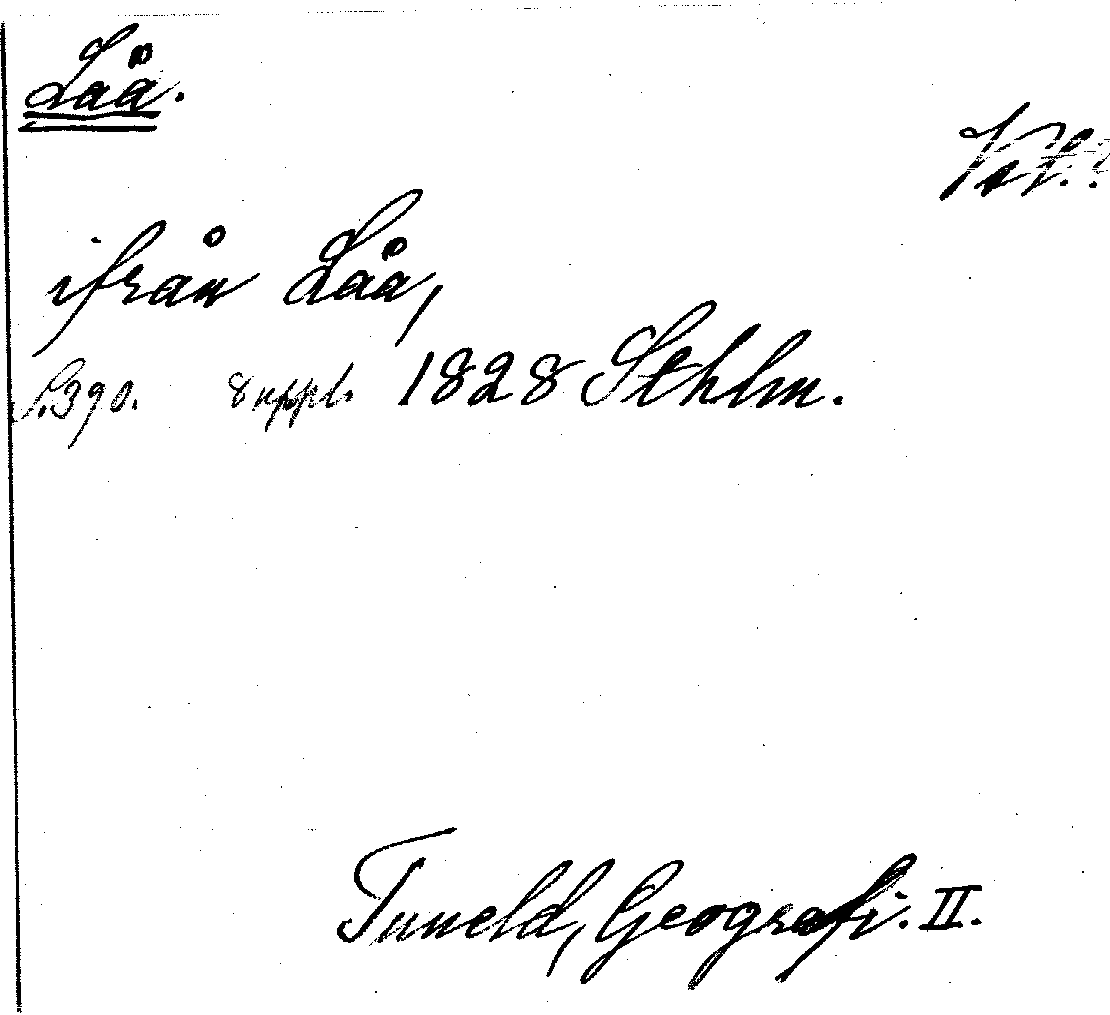 Laå.
Vst.?
ifrån Laå,
S. 390. 8 uppl. 1828 Sthlm.
Tuneld, Geografi. II.